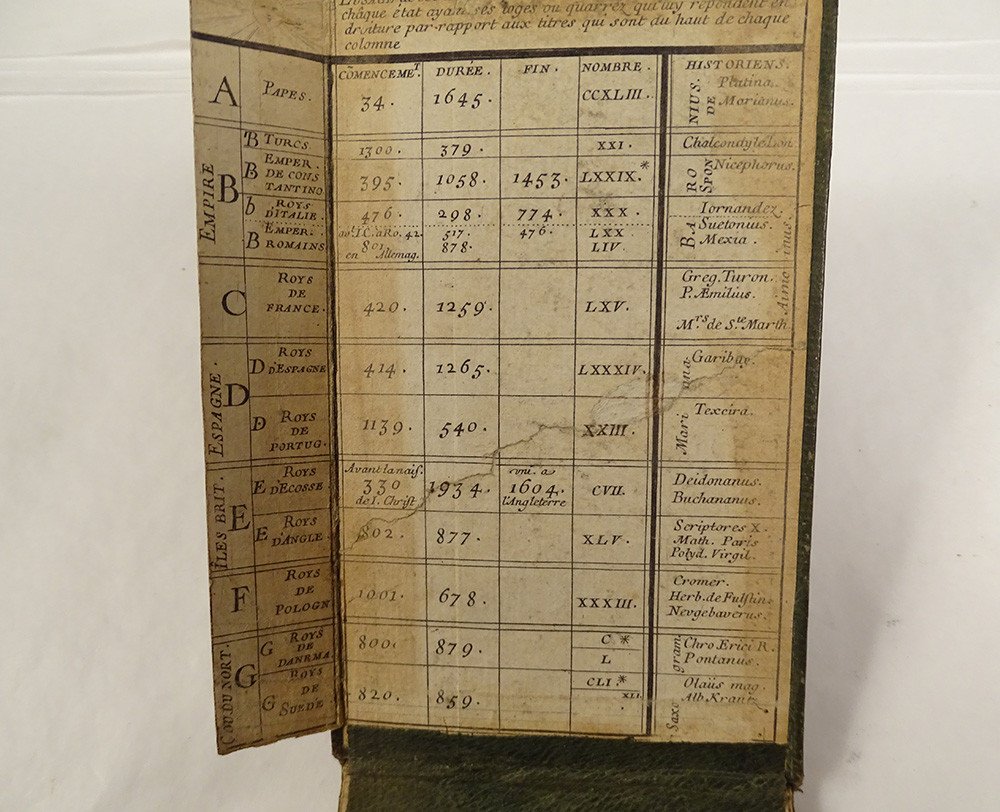 chaque état ayant ses loges ou quarrez qui luy repondent en
droiture par-rapport aux titres qui sont du haut de chaque
colomne
CÕMENCEMET. DURÉE. FIN. NOMBRE. HISTORIENS.
A PAPES. 34. 1645. CCXLIII. NIUS. DE Platina.
Marianus.
EMPIRE B
B TURCS 1300. 379. XXI. Chalcondyle Leon
B EMPER.
DE CONS
TANTINO. 395. 1058. 1453. LXXIX.* RO SPON Nicephorus.
b ROYS
D'ITALIE. 476. 298. 774. XXX. Iornandez.
B EMPER.
ROMAINS av. I.C. à Ro. 42. 517. 476. LXX BA Suetonius.
801. 878. LIV. Mexia.
en Allemag.
C ROYS
DE
FRANCE. 420. 1259. LXV. Greg. Turon.
P. Æmilius.
Mrs. de Ste Marth
ESPAGNE. D
D ROYS
D'ESPAGNE 414. 1265. LXXXIV. Mari ana Garibay.
D ROYS
DE
PORTUG. 1139. 540. XXIII. Texeira.
ÎLES BRIT. E
E ROYS
D'ECOSSE Avant la nais.
330
de I. Christ 1934. uni. a
1604.
l'Angleterre CVII. Deidonanus.
Buchananus.
E ROYS
D'ANGLE. 802. 877. XLV. Scriptores X.
Math. Paris
Polyd. Virgil.
F ROYS
DE
POLOGN 1001. 678. XXXIII. Cromer.
Herb. de Fulstin.
Neugebaverus.
COU. DU NORT. G
G ROYS
DE
DANEMA. 800. 879. C *
L gram Chro Erici R.
Pontanus.
G ROYS
DE
SUEDE 820. 859. CLI.*
XLI. Saxo Olaüs mag.
Alb. Krantz